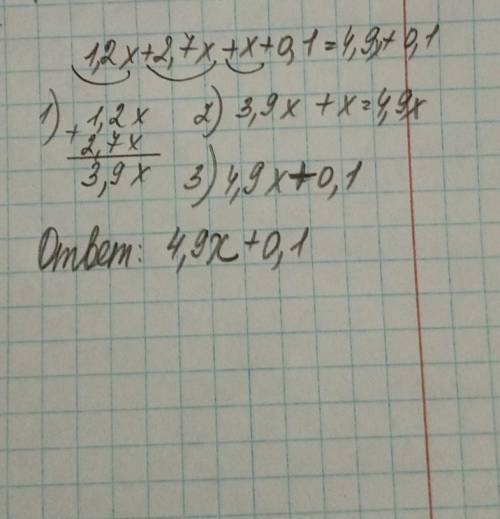 1,2x+2,7x+x+0,1=4,9x+0,1
1) 1,2x 2) 3,9x+x=4,9x
+ 2,7x
3,9x 3) 4,9x+0,1
Ответ: 4,9x+0,1